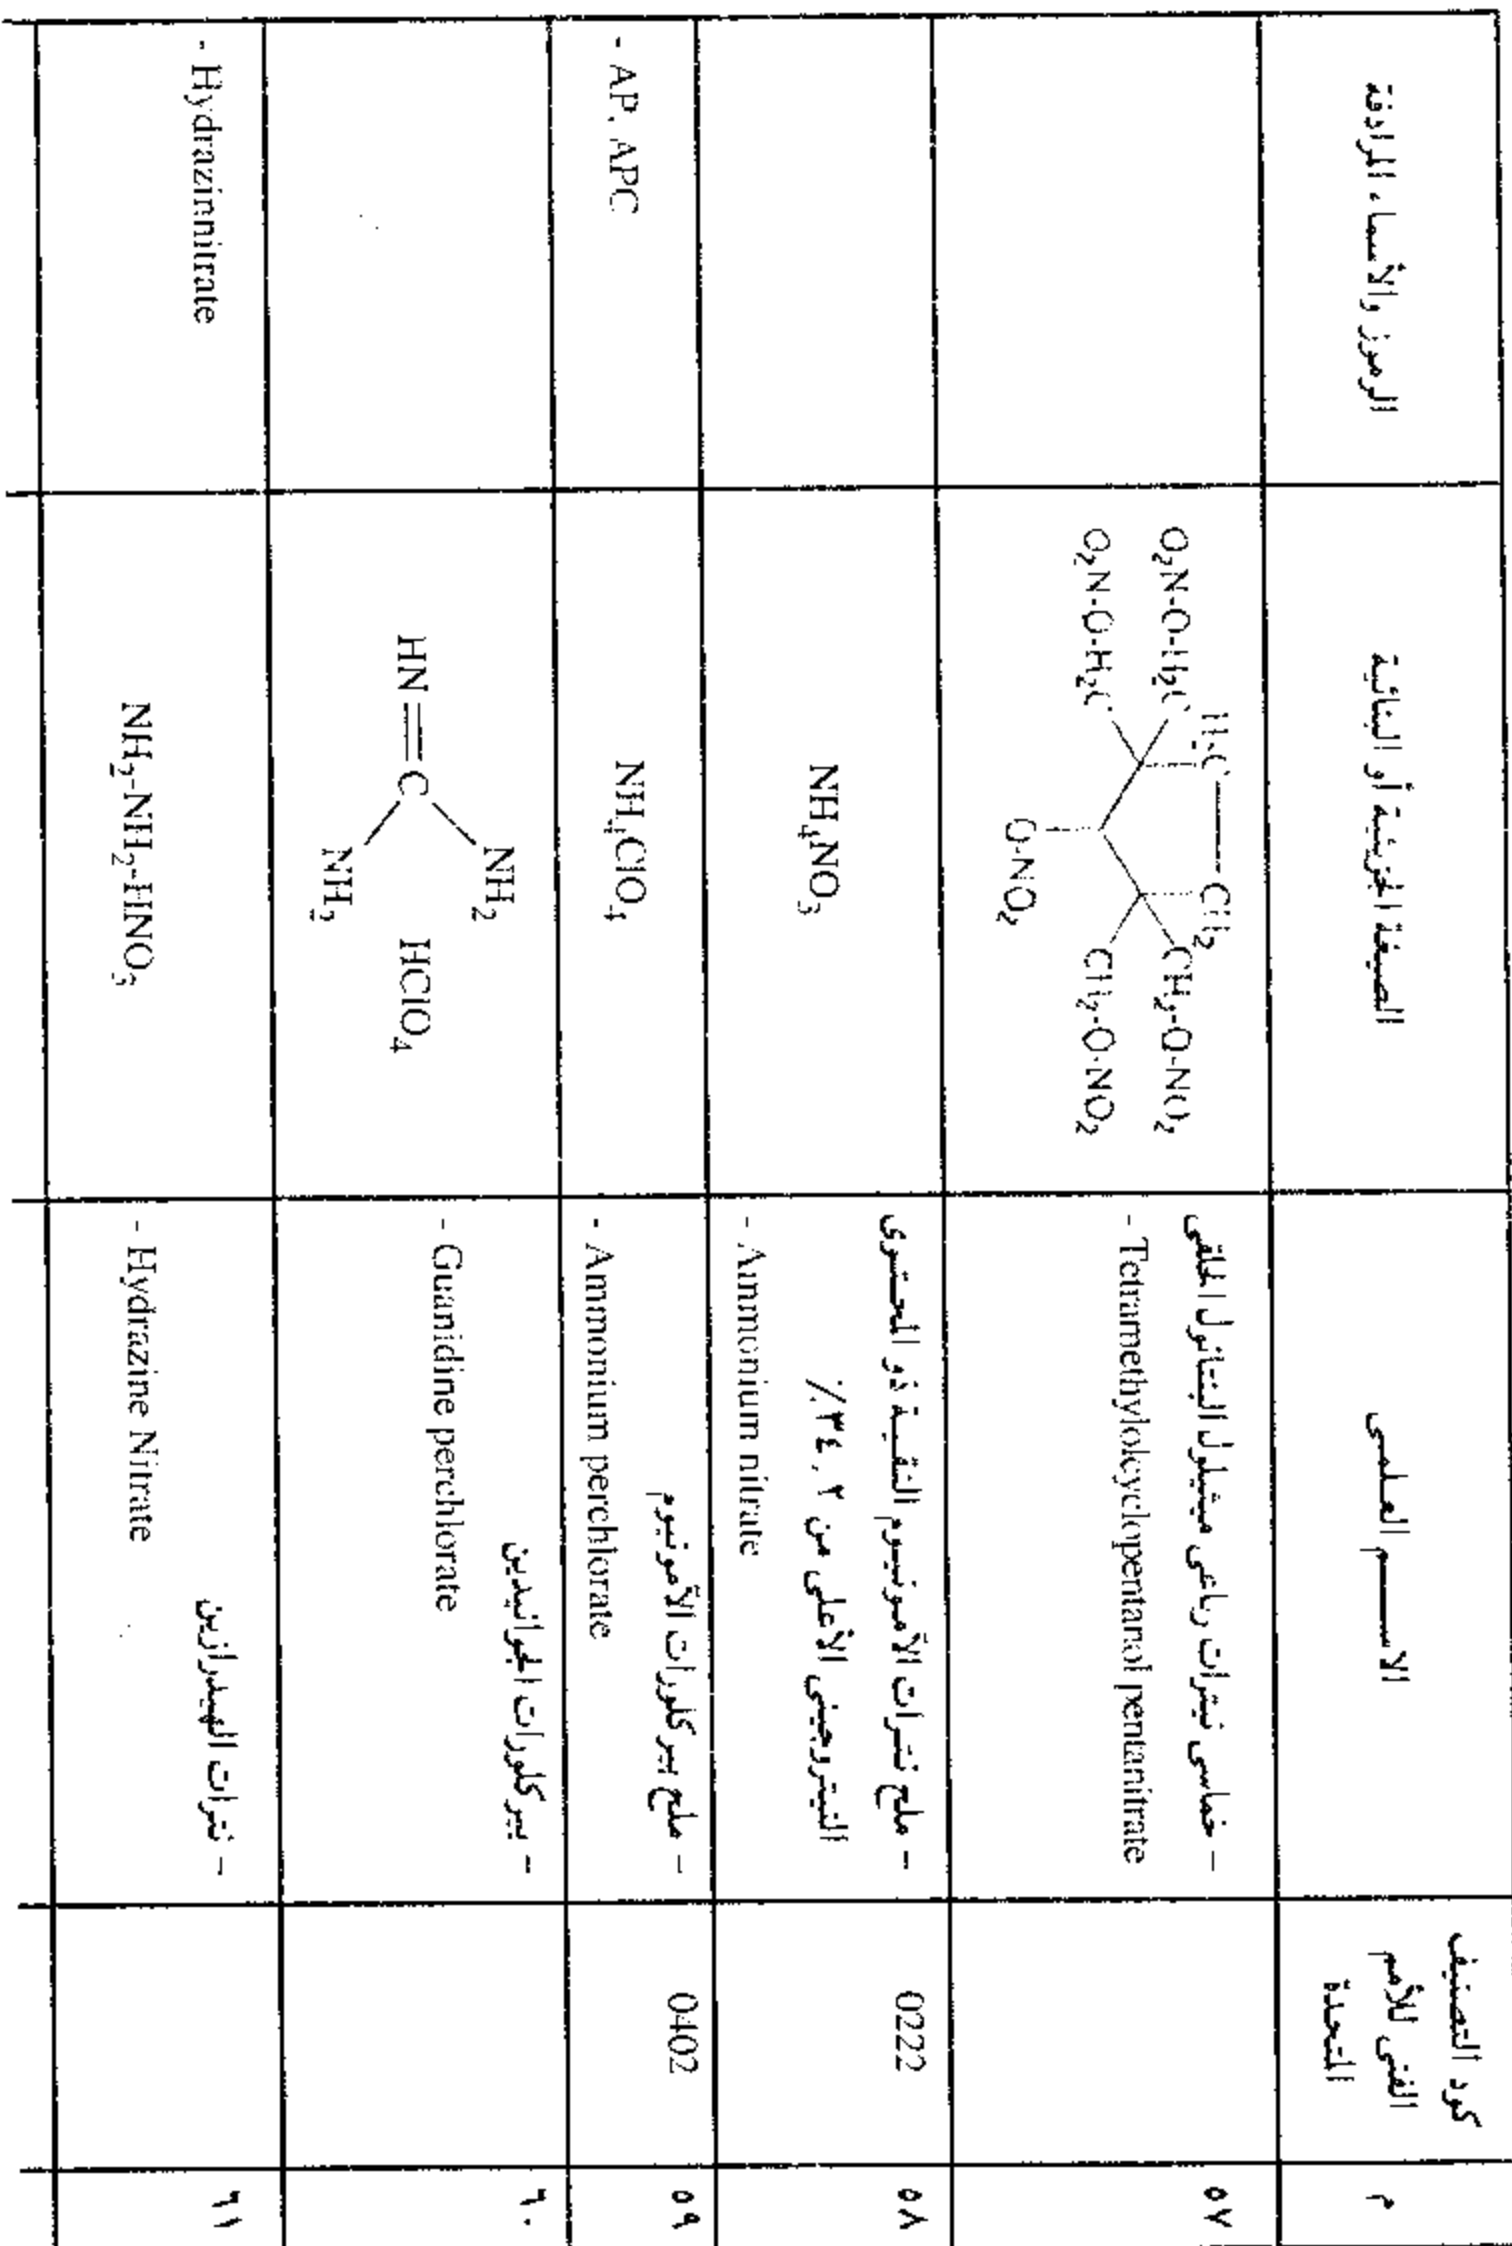 م
كود التصنيف
الفنى للأمم
المتحدة
الاســـــم العلمـى
الصيغة الجزيئية أو البنائية
الرموز والأسماء المرادفة
٥٧
- خماسى نيترات رباعى ميثيلول البنتانول الحلقى
- Tetramethylolcyclopentanol pentanitrate
H₂C—CH₂
O₂N-O-H₂C CH₂-O-NO₂
O₂N-O-H₂C CH₂-O-NO₂
O-NO₂
٥٨
0222
- ملح نترات الأمونيوم النقية ذو المحتوى
النيتروجينى الأعلى من ٣٤,٢٪
- Ammonium nitrate
NH₄NO₃
٥٩
0402
- ملح بيركلورات الأمونيوم
- Ammonium perchlorate
NH₄ClO₄
- AP, APC
٦٠
- بيركلورات الجوانيدين
- Guanidine perchlorate
NH₂
HN=C HClO₄
NH₂
٦١
- نترات الهيدرازين
- Hydrazine Nitrate
NH₂-NH₂-HNO₃
- Hydrazinnitrate